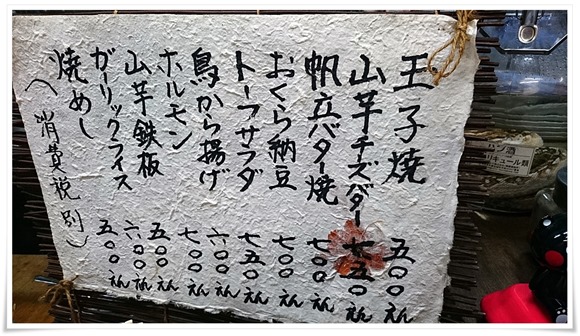 玉子焼 五〇〇えん
山芋チーズバター 七五〇えん
帆立バター焼 七〇〇えん
おくら納豆 七〇〇えん
トーフサラダ 七五〇えん
鳥から揚げ 六〇〇えん
ホルモン 七〇〇えん
山芋鉄板 五〇〇えん
ガーリックライス 六〇〇えん
焼めし 五〇〇えん
(消費税別)
リキュール類